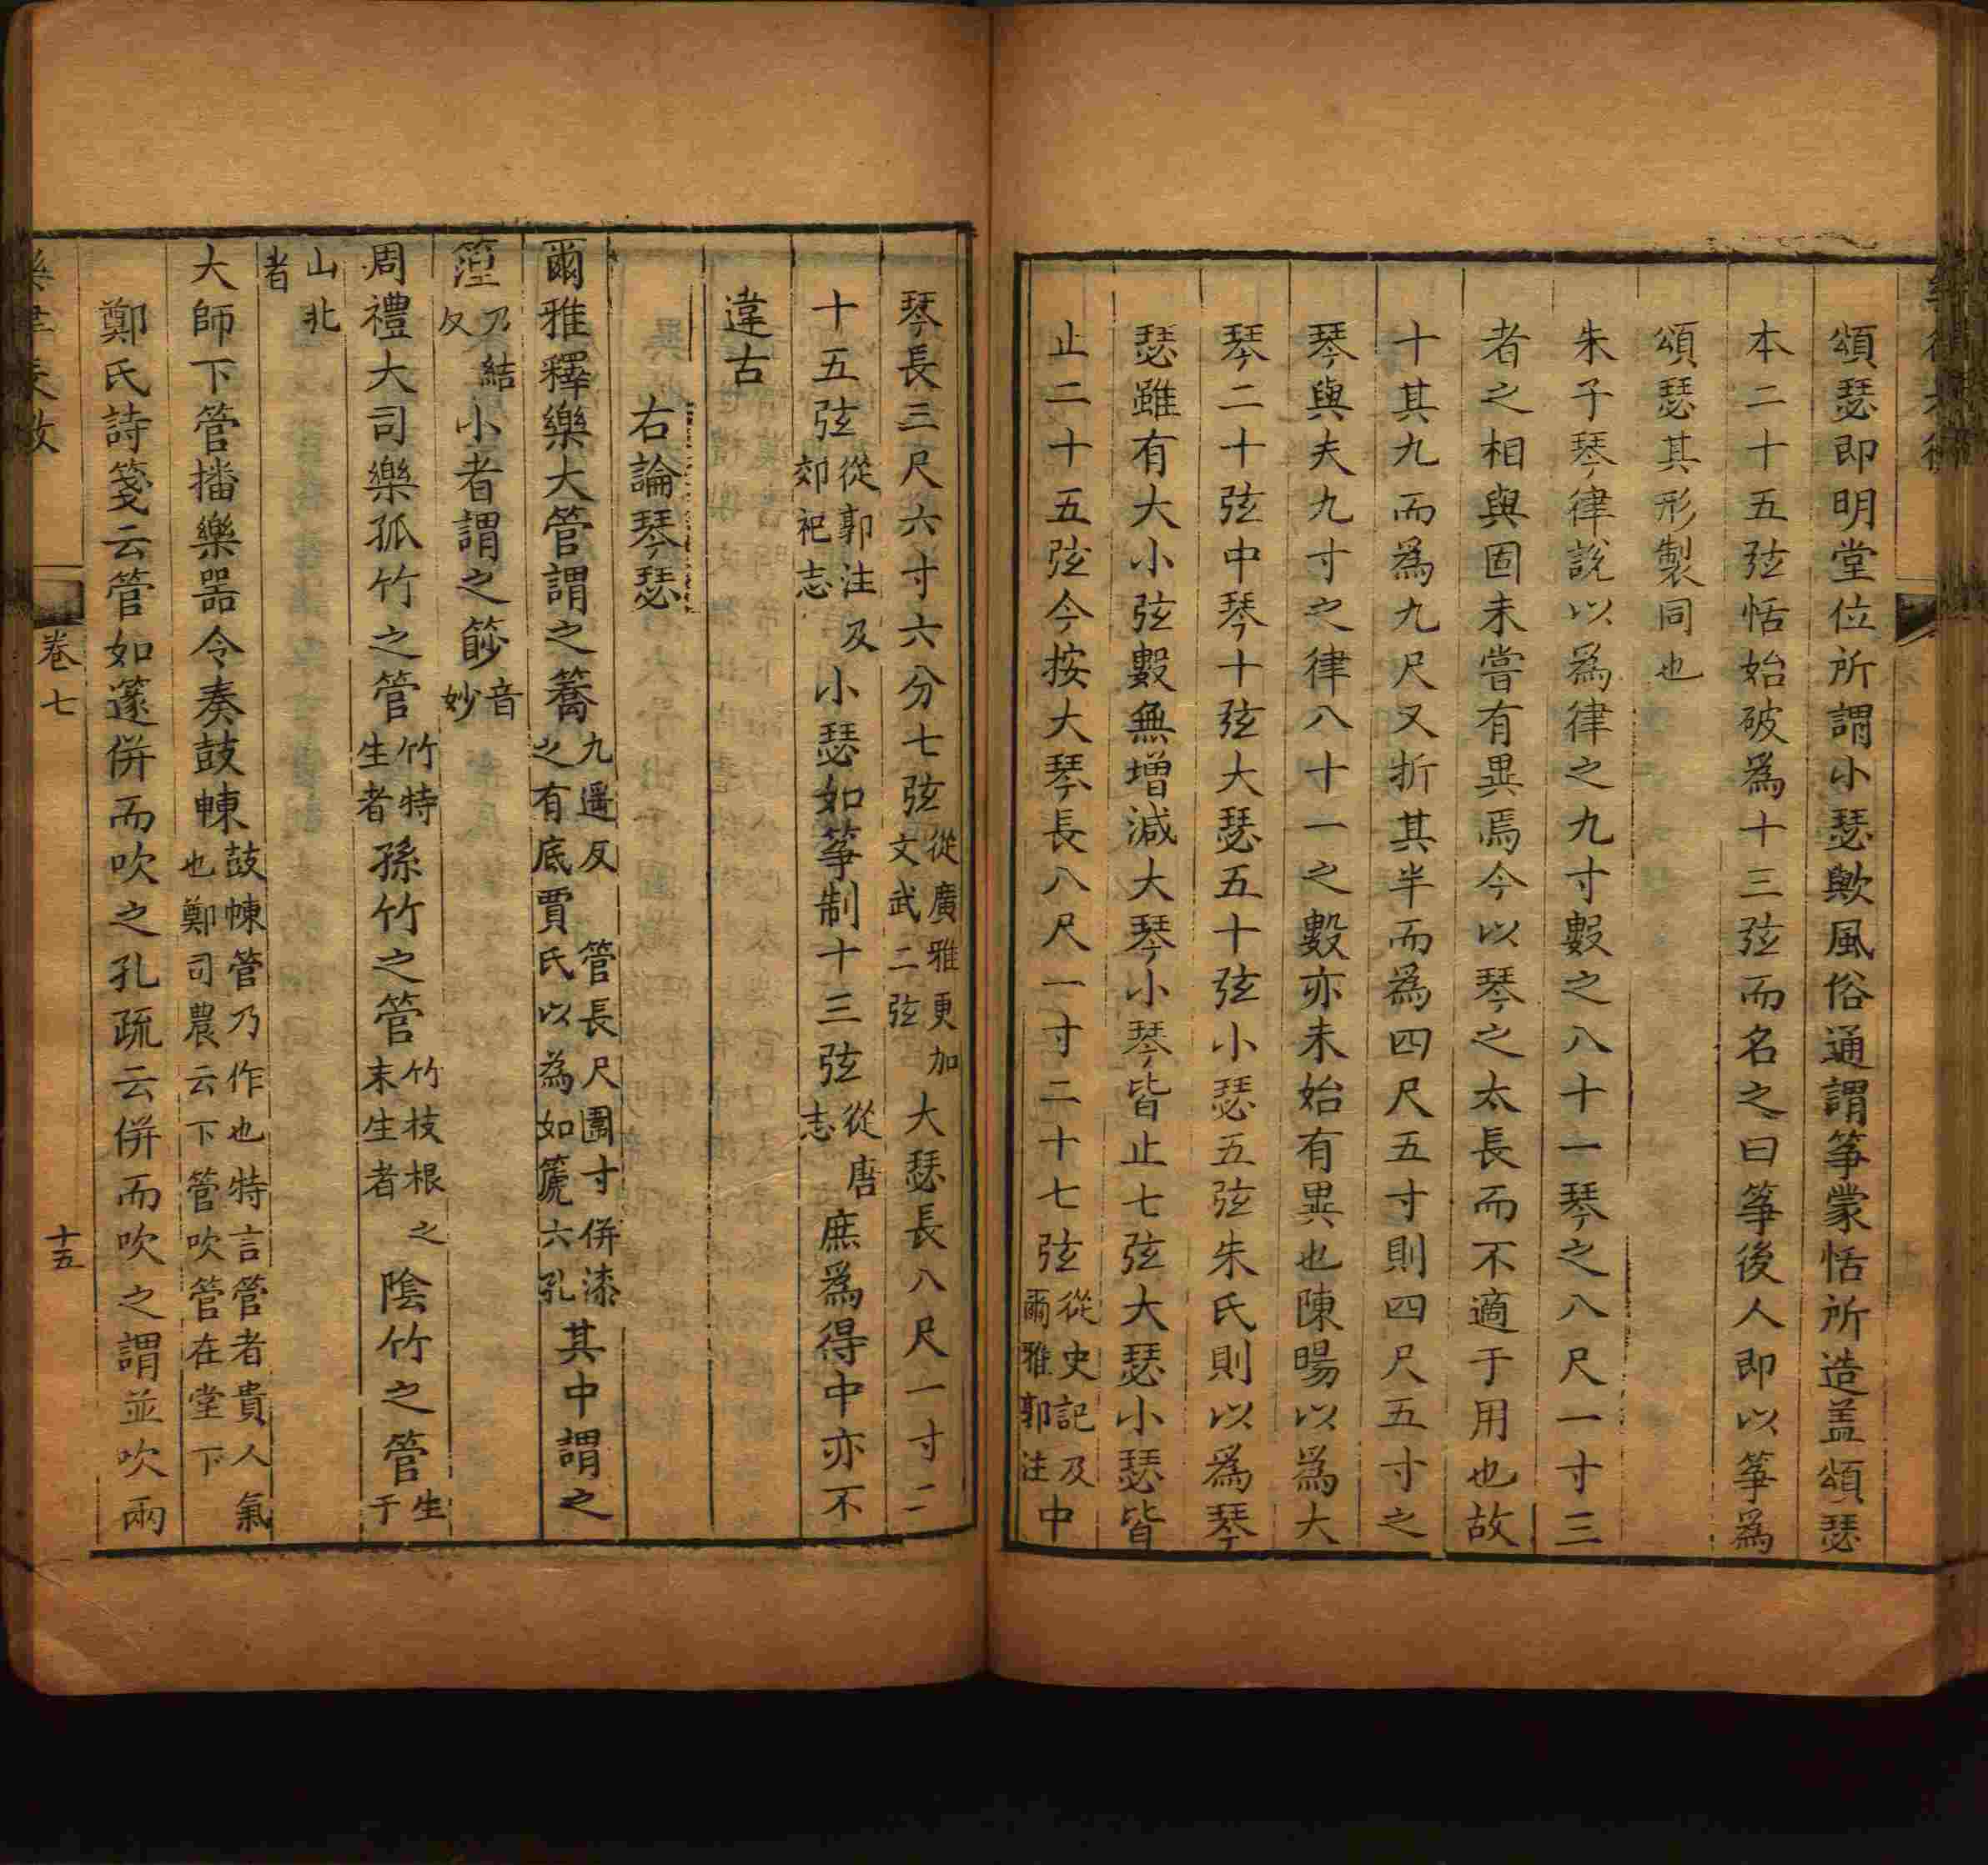 頌瑟即明堂位所謂小瑟歟風俗通謂箏蒙恬所造盖頌瑟
本二十五弦恬始破爲十三弦而名之曰箏後人即以箏爲
頌瑟其形製同也
朱子琴律說以爲律之九寸數之八十一琴之八尺一寸三
者之相與固未嘗有異焉今以琴之太長而不適于用也故
十其九而爲九尺又折其半而爲四尺五寸則四尺五寸之
琴與夫九寸之律八十一之數亦未始有異也陳暘以爲大
琴二十弦中琴十弦大瑟五十弦小瑟五弦朱氏則以爲琴
瑟雖有大小弦數無增減大琴小琴皆止七弦大瑟小瑟皆
止二十五弦今按大琴長八尺一寸二十七弦從史記及爾雅郭注中
琴長三尺六寸六分七弦從廣雅更加文武二弦大瑟長八尺一寸二
十五弦從郭注及郊祀志小瑟如箏制十三弦從唐志庶爲得中亦不
違古
右論琴瑟
爾雅釋樂大管謂之簥九遥反管長尺圍寸併漆之有底賈氏以為如篪六孔其中謂之
篞乃結反小者謂之篎音妙
周禮大司樂孤竹之管竹特生者孫竹之管竹枝根之末生者陰竹之管生于
山北者
大師下管播樂噐令奏鼓㯥鼓㯥管乃作也特言管者貴人氣也鄭司農云下管吹管在堂下
鄭氏詩箋云管如篴併而吹之孔疏云併而吹之謂並吹兩
卷七
十五